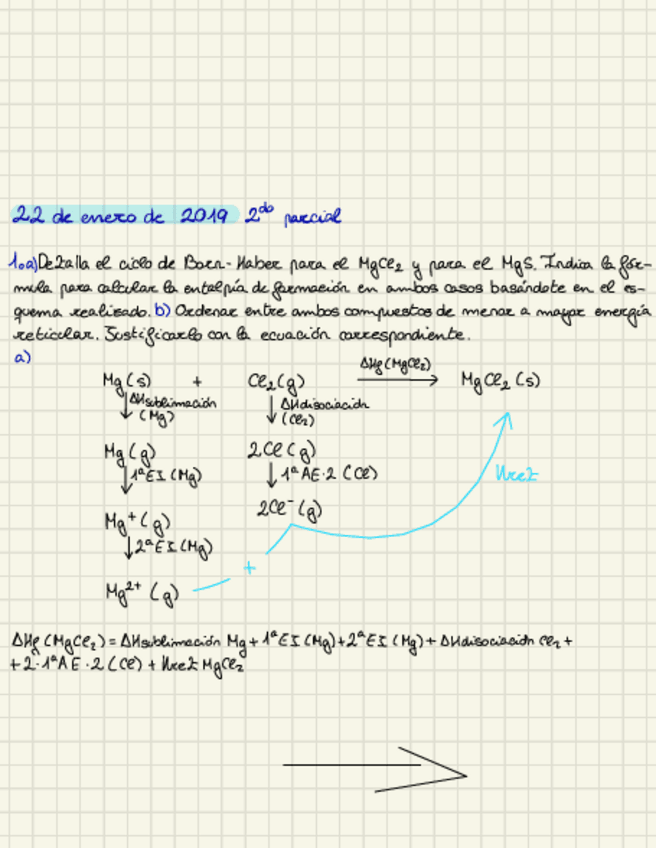 22 de enero de 2019 2do parcial
1.a) Detalla el ciclo de Born-Haber para el MgCl2 y para el MgS. Indica la fór-
mula para calcular la entalpía de formación en ambos casos basándote en el es-
quema realizado. b) Ordenar entre ambos compuestos de menor a mayor energía
reticular. Justificarlo con la ecuación correspondiente.
a)
ΔHf(MgCl2)
Mg(s) + Cl2(g) → MgCl2(s)
↓ ΔHsublimación ↓ ΔHdisociación
(Mg) (Cl2)
Mg(g) 2Cl(g)
↓ 1ªEI(Mg) ↓ 1ªAE·2(Cl) Uret
2Cl⁻(g)
Mg⁺(g)
↓ 2ªEI(Mg)
+
Mg²⁺(g)
ΔHf(MgCl2) = ΔHsublimación Mg + 1ªEI(Mg) + 2ªEI(Mg) + ΔHdisociación Cl2 +
+2·1ªAE·2(Cl) + Uret MgCl2